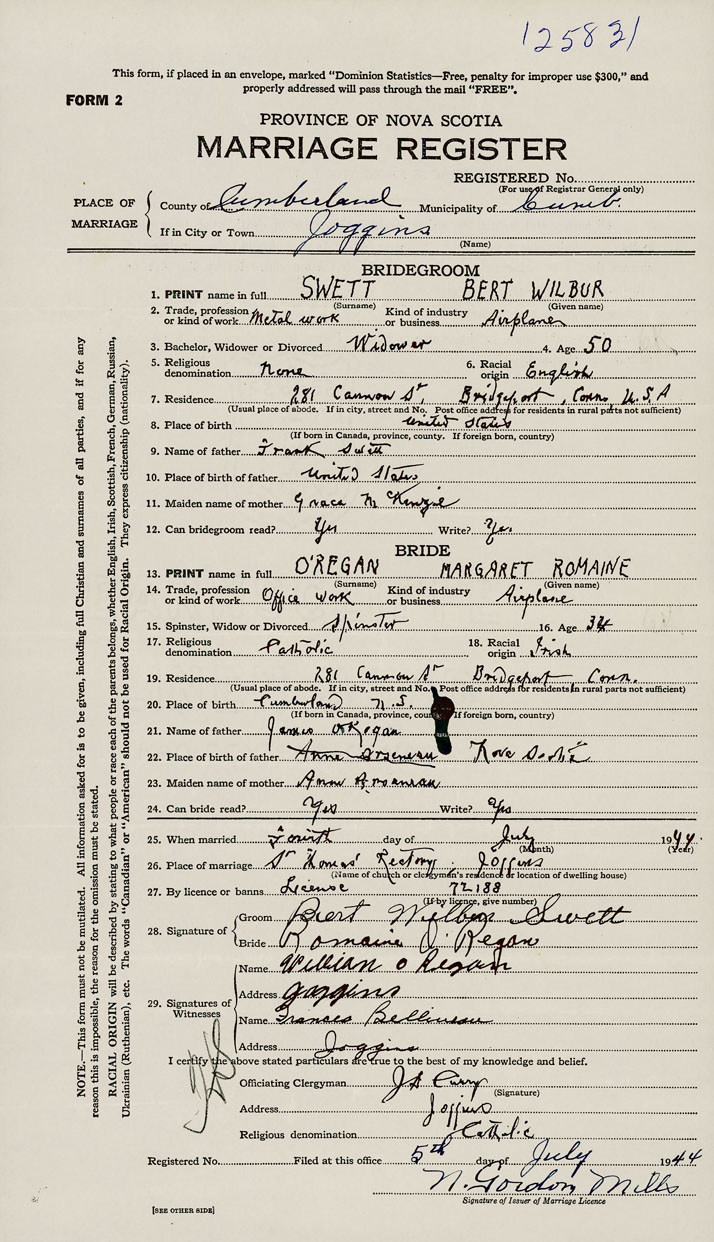 125831
This form, if placed in an envelope, marked "Dominion Statistics—Free, penalty for improper use $300," and
properly addressed will pass through the mail "FREE".
FORM 2
PROVINCE OF NOVA SCOTIA
MARRIAGE REGISTER
REGISTERED No.
(For use of Registrar General only)
PLACE OF MARRIAGE
County of Cumberland Municipality of Cumb.
If in City or Town Joggins
(Name)
BRIDEGROOM
1. PRINT name in full SWETT BERT WILBUR
(Surname) (Given name)
2. Trade, profession or kind of work Metal work Kind of industry or business Airplane
3. Bachelor, Widower or Divorced Widower 4. Age 50
5. Religious denomination None 6. Racial origin English
7. Residence 281 Cannon St, Bridgeport, Conn, U.S.A
(Usual place of abode. If in city, street and No. Post office address for residents in rural parts not sufficient)
8. Place of birth United States
(If born in Canada, province, county. If foreign born, country)
9. Name of father Frank Swett
10. Place of birth of father United States
11. Maiden name of mother Grace McKenzie
12. Can bridegroom read? Yes Write? Yes
BRIDE
13. PRINT name in full O'REGAN MARGARET ROMAINE
(Surname) (Given name)
14. Trade, profession or kind of work Office work Kind of industry or business Airplane
15. Spinster, Widow or Divorced Spinster 16. Age 34
17. Religious denomination Catholic 18. Racial origin Irish
19. Residence 281 Cannon St Bridgeport Conn.
(Usual place of abode. If in city, street and No. Post office address for residents in rural parts not sufficient)
20. Place of birth Cumberland N.S.
(If born in Canada, province, county. If foreign born, country)
21. Name of father James O'Regan
22. Place of birth of father Anne Arseneau Nova Scotia
23. Maiden name of mother Anne Arseneau
24. Can bride read? Yes Write? Yes
25. When married Fourth day of July 1944
(Month) (Year)
26. Place of marriage St Thomas' Rectory. Joggins
(Name of church or clergyman's residence or location of dwelling house)
27. By licence or banns License 72188
(If by licence, give number)
28. Signature of
Groom Bert Wilbur Swett
Bride Romaine O'Regan
29. Signatures of Witnesses
Name William O Regan
Address Joggins
Name Frances Belliveau
Address Joggins
I certify the above stated particulars are true to the best of my knowledge and belief.
Officiating Clergyman
(Signature)
Address Joggins
Religious denomination Catholic
Registered No. Filed at this office 5th day of July 1944
N. Gordon Mills
Signature of Issuer of Marriage Licence
[SEE OTHER SIDE]
NOTE.—This form must not be mutilated. All information asked for is to be given, including full Christian and surnames of all parties, and if for any
reason this is impossible, the reason for the omission must be stated.
RACIAL ORIGIN will be described by stating to what people or race each of the parents belongs, whether English, Irish, Scottish, French, German, Russian,
Ukrainian (Ruthenian), etc. The words "Canadian" or "American" should not be used for Racial Origin. They express citizenship (nationality).